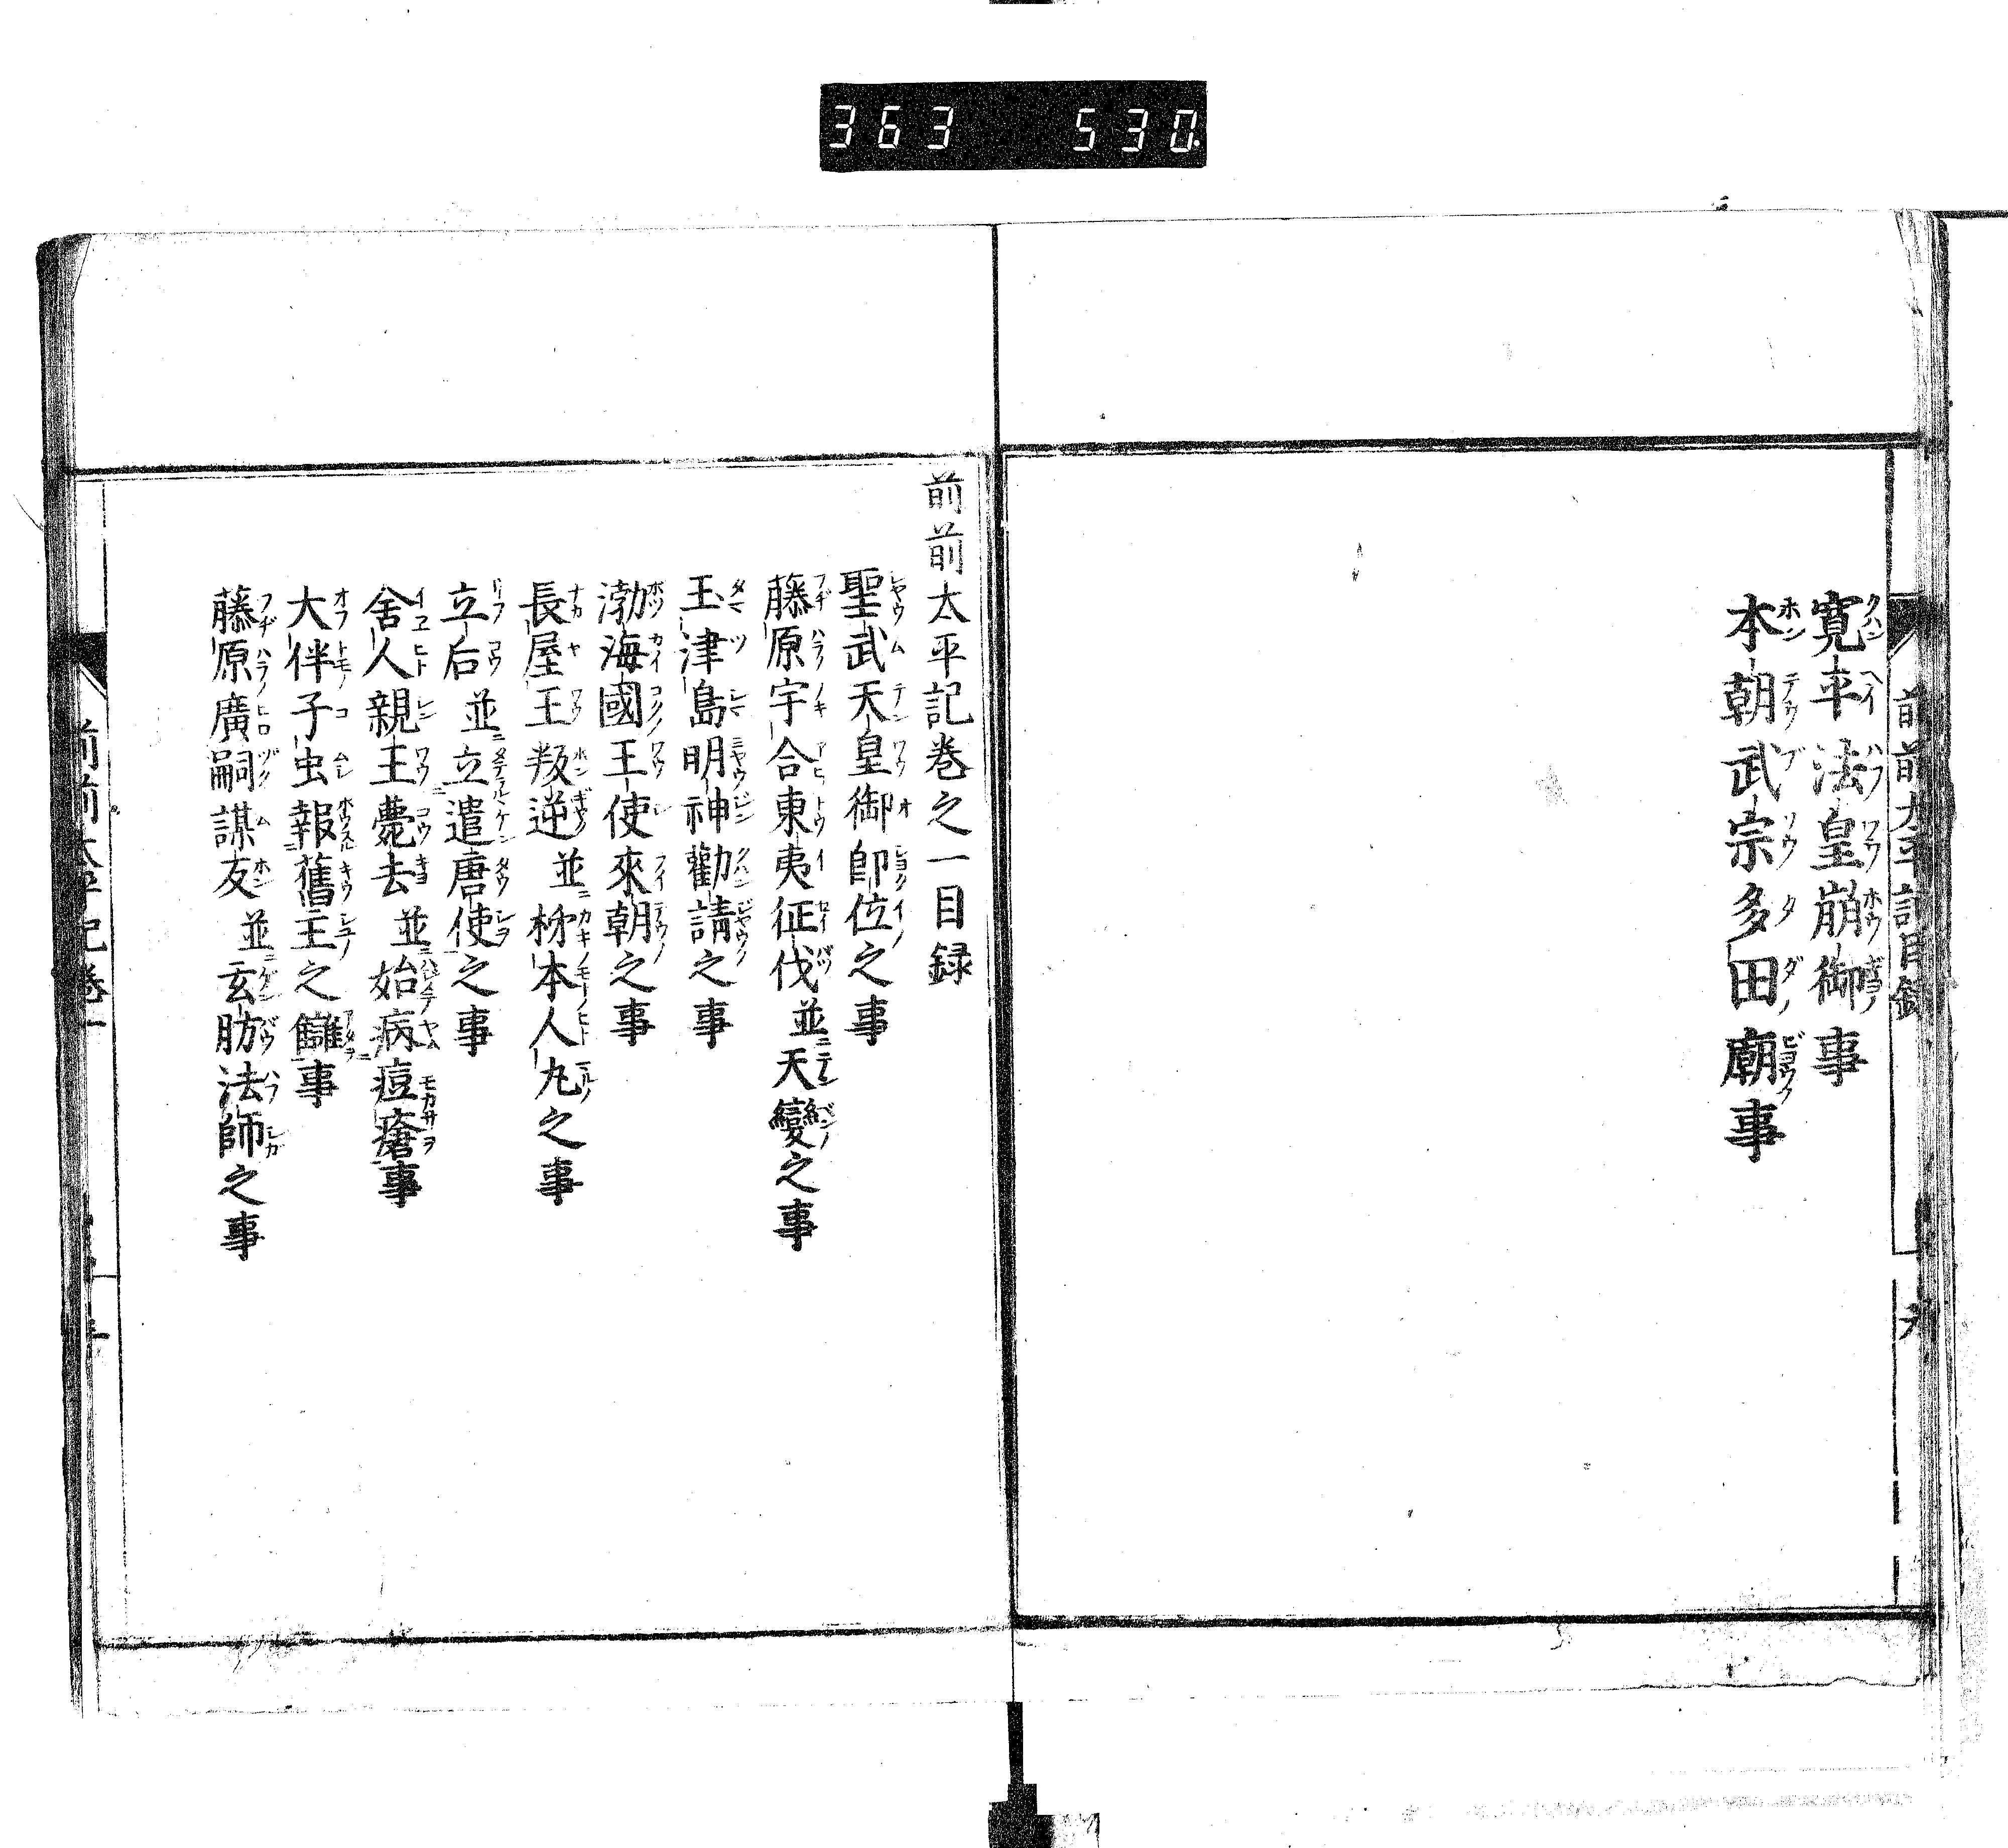 363 530
前前太平記目録
寛平法皇崩御事
本朝武宗多田廟事
前前太平記巻之一目録
聖武天皇御即位之事
藤原宇合東夷征伐並天變之事
玉津島明神勸請之事
渤海國王使來朝之事
長屋王叛逆並柹本人丸之事
立后並立遣唐使之事
舍人親王薨去並始病痘瘡事
大伴子虫報舊主之讎事
藤原廣嗣謀友並玄肪法師之事
前前太平記巻一